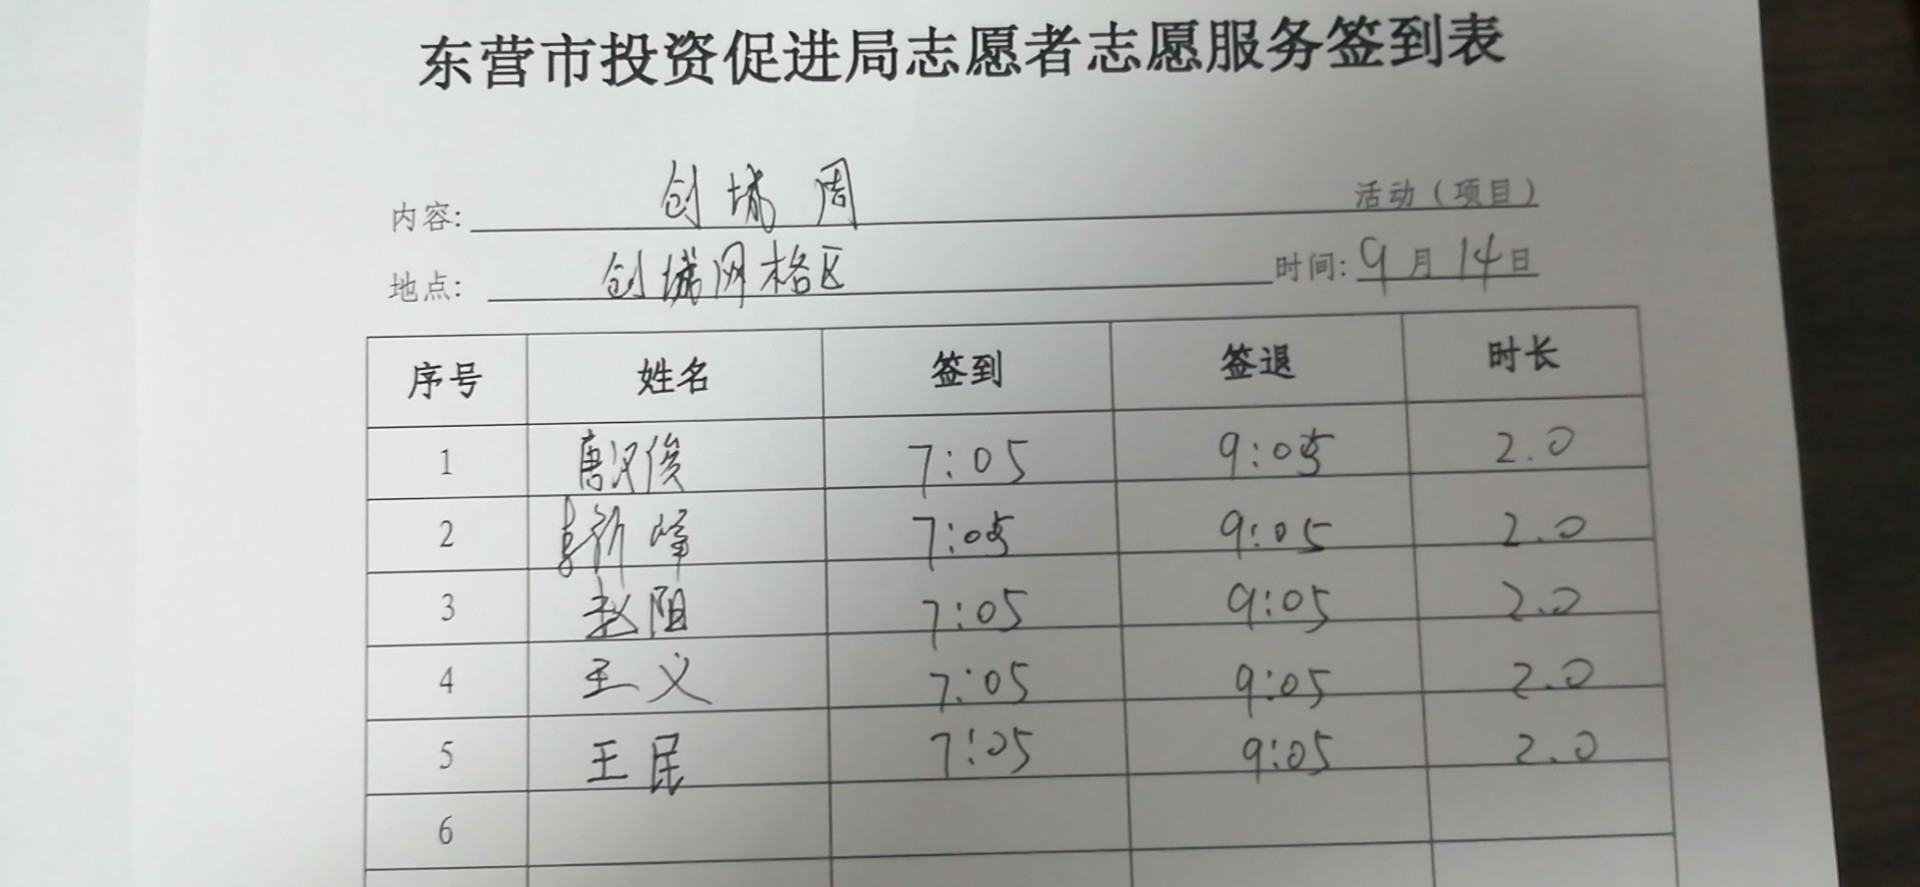 东营市投资促进局志愿者志愿服务签到表
内容: 创城周 活动（项目）
地点: 创城网格区 时间: 9月14日
序号 姓名 签到 签退 时长
1 唐汉俊 7:05 9:05 2.0
2 新峰 7:05 9:05 2.0
3 赵阳 7:05 9:05 2.0
4 王义 7:05 9:05 2.0
5 王民 7:05 9:05 2.0
6